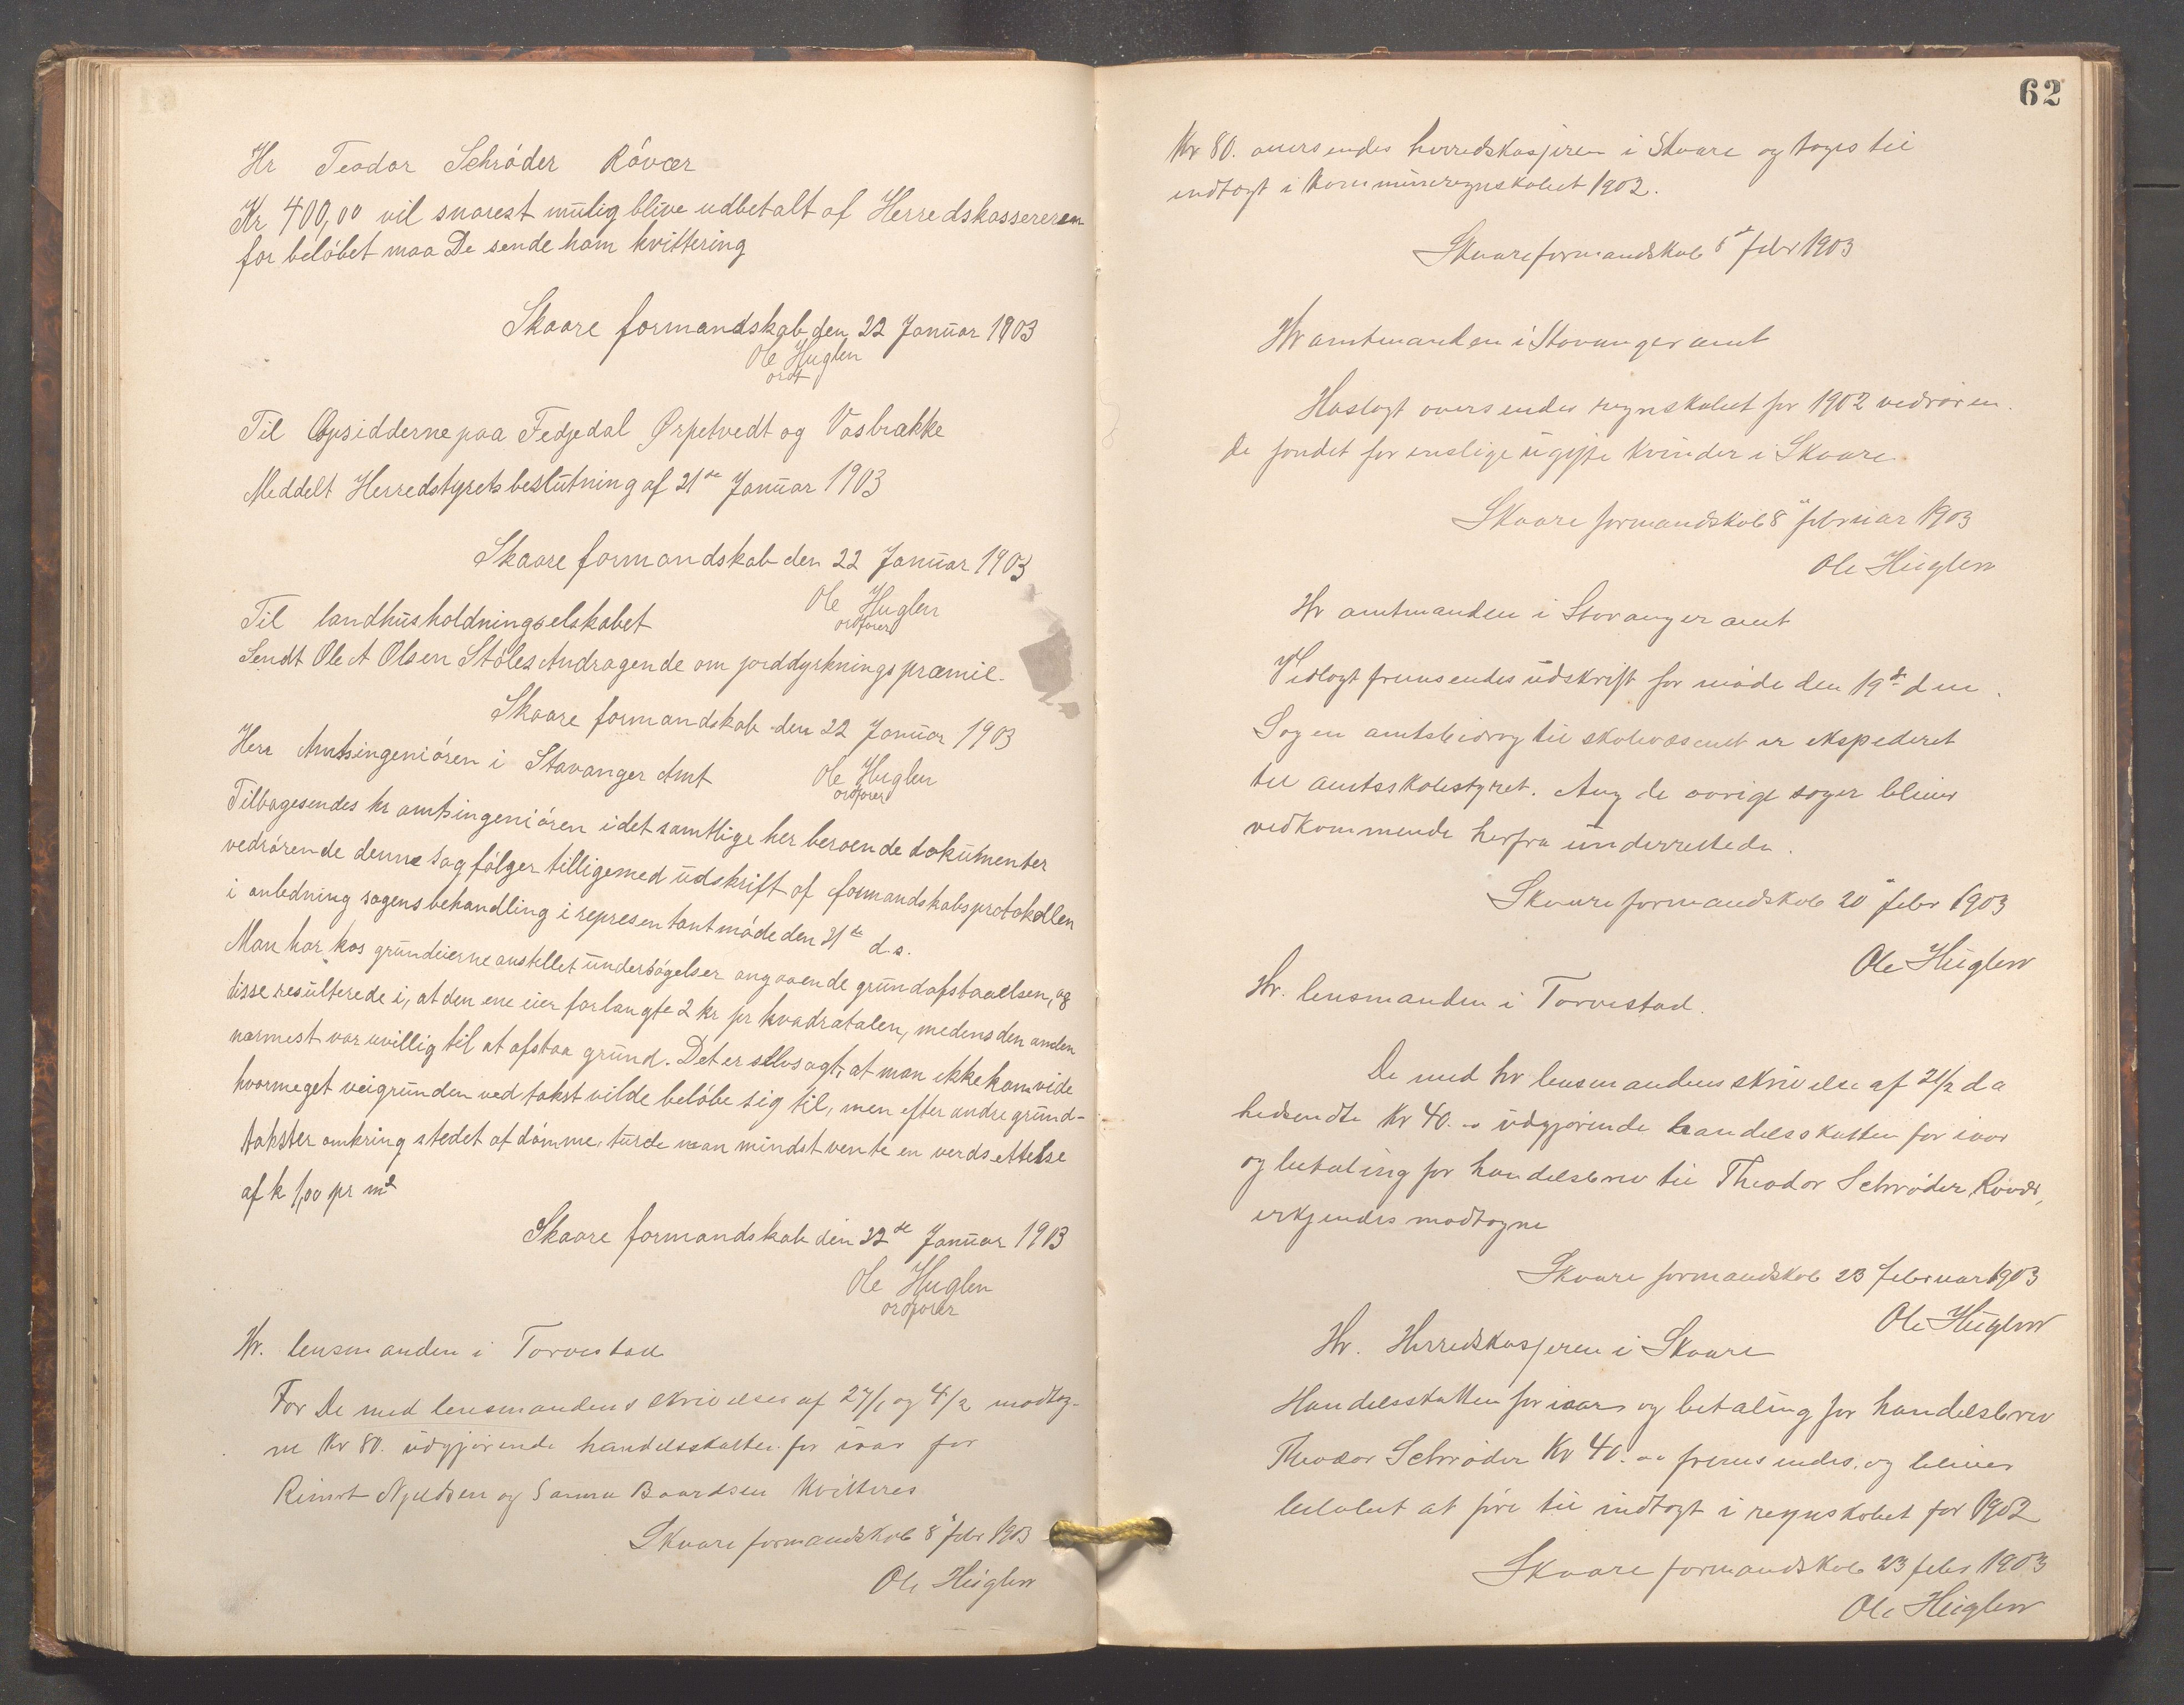 Hr Teodor Schröder Rövær
Kr 400,00 vil snarest mulig blive udbetalt af Herredskassereren
for belöbet maa De sende ham kvittering
Skaare formandskab den 22 Januar 1903
Ole Huglen
ordf
Til Opsidderne paa Fedjedal Ørpetvedt og Vasbrække
Meddelt Herredstyrets beslutning af 21de Januar 1903
Skaare formandskab den 22 Januar 1903
Ole Huglen
ordförer
Til landhusholdningselskabet
Sendt Ole A Olsen Støles Andragende om jorddyrkningspræmie.
Skaare formandskab den 22 Januar 1903
Ole Huglen
ordförer
Herr Amtsingeniören i Stavanger Amt
Tilbagesendes hr amtsingeniören idet samtlige her beroende dokumenter
vedrörende denne sag fölger tilligemed udskrift af formandskabsprotokollen
i anledning sagens behandling i representantmöde den 21de d.s.
Man har hos grundeierne anstillet undersögelser angaaende grundafstaaelsen, og
disse resulterede i, at den ene eier forlangte 2 kr pr kvadratalen, medens den anden
nærmest var uvillig til at afstaa grund. Det er selvsagt, at man ikke kan vide
hvormeget veigrunden ved takst vilde belöbe sig til, men efter andre grund-
takster omkring stedet at dömme, turde man mindst vente en verdsettelse
af k 1,00 pr m2
Skaare formandskab den 22de Januar 1903
Ole Huglen
ordförer
Hr. lensmanden i Torvestad
For De med lensmandens skrivelser af 27/1 og 4/2 modtag-
ne Kr 80. udgjörende handelsskatten for ivar for
Njeldsen og Baardsen kvitteres
Skaare formandskab 8" febr 1903
Ole Huglen
62
Kr 80. oversendes herredskasjeren i Skaare og tages til
indtægt i kommuneregnskabet 1902.
Skaare formandskab febr 1903
Hr amtmanden i Stavanger amt
Hoslagt oversendes regnskabet for 1902 vedrören-
de fondet for enslige ugifte kvinder i Skaare
Skaare formandskab 8" februar 1903
Ole Huglen
Hr amtmanden i Stavanger amt
Vedlagt fremsendes udskrift for möde den 19de dm.
Sagen amtsbidrag til skolevæsenet er ekspederet
til amtsskolestyret. Ang de övrige sager bliver
vedkommende herfra underrettede.
Skaare formandskab 20" febr 1903
Ole Huglen
Hr. lensmanden i Torvestad.
De med hr lensmandens skrivelse af 21/2 d a
hidsendte Kr 40.00 udgjörende handelsskatten for ivar
og betaling for handelsbrev til Theodor Schröder, Rövær,
erkjendes modtagne
Skaare formandskab 23 februar 1903
Ole Huglen
Hr. Herredskasjeren i Skaare
Handelsskatten for ivar og betaling for handelsbrev
Theodor Schröder Kr 40.00 fremsendes, og bliver
belöbet at före til indtægt i regnskabet for 1902
Skaare formandskab 23 febr 1903
Ole Huglen